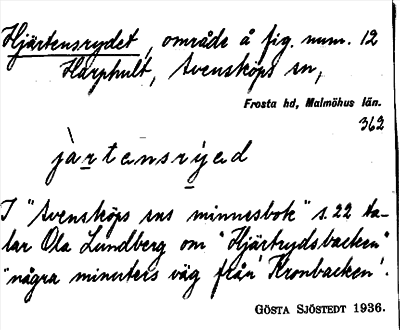 Hjärtensrydet, område å fig. num. 12
Harphult, Svensköps sn,
Frosta hd, Malmöhus län.
362
jàrtensrýed
I "Svensköps sns minnesbok" s. 22 ta-
lar Ola Lundberg om "Hjärtrydsbacken"
"några minuters väg från Kronbacken".
GÖSTA SJÖSTEDT 1936.